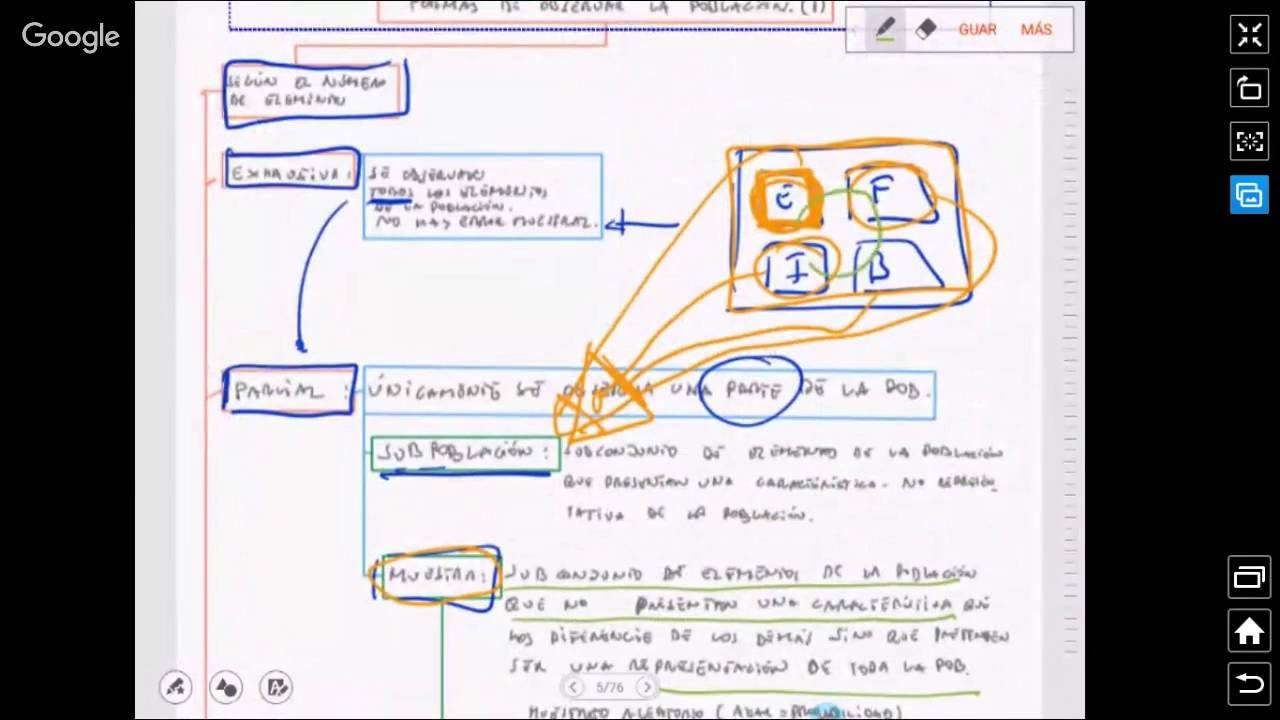 Google
FORMAS DE OBSERVAR LA POBLACIÓN. (1)
GUAR MÁS
SEGÚN EL NÚMERO
DE ELEMENTOS
EXHAUSTIVA:
SE OBSERVAN
TODOS LOS ELEMENTOS
DE LA POBLACIÓN.
NO HAY ERROR MUESTRAL.
E F
I B
PARCIAL: ÚNICAMENTE SE OBSERVA UNA PARTE DE LA POB.
SUBPOBLACIÓN: SUBCONJUNTO DE ELEMENTOS DE LA POBLACIÓN
QUE PRESENTAN UNA CARACTERÍSTICA. NO REPRESEN
TATIVA DE LA POBLACIÓN.
MUESTRA: SUBCONJUNTO DE ELEMENTOS DE LA POBLACIÓN
QUE NO PRESENTAN UNA CARACTERÍSTICA QUE
LOS DIFERENCIE DE LOS DEMÁS SINO QUE PRETENDEN
SER UNA REPRESENTACIÓN DE TODA LA POB.
5/76
MUESTREO ALEATORIO (AZAR = PROBABILIDAD)